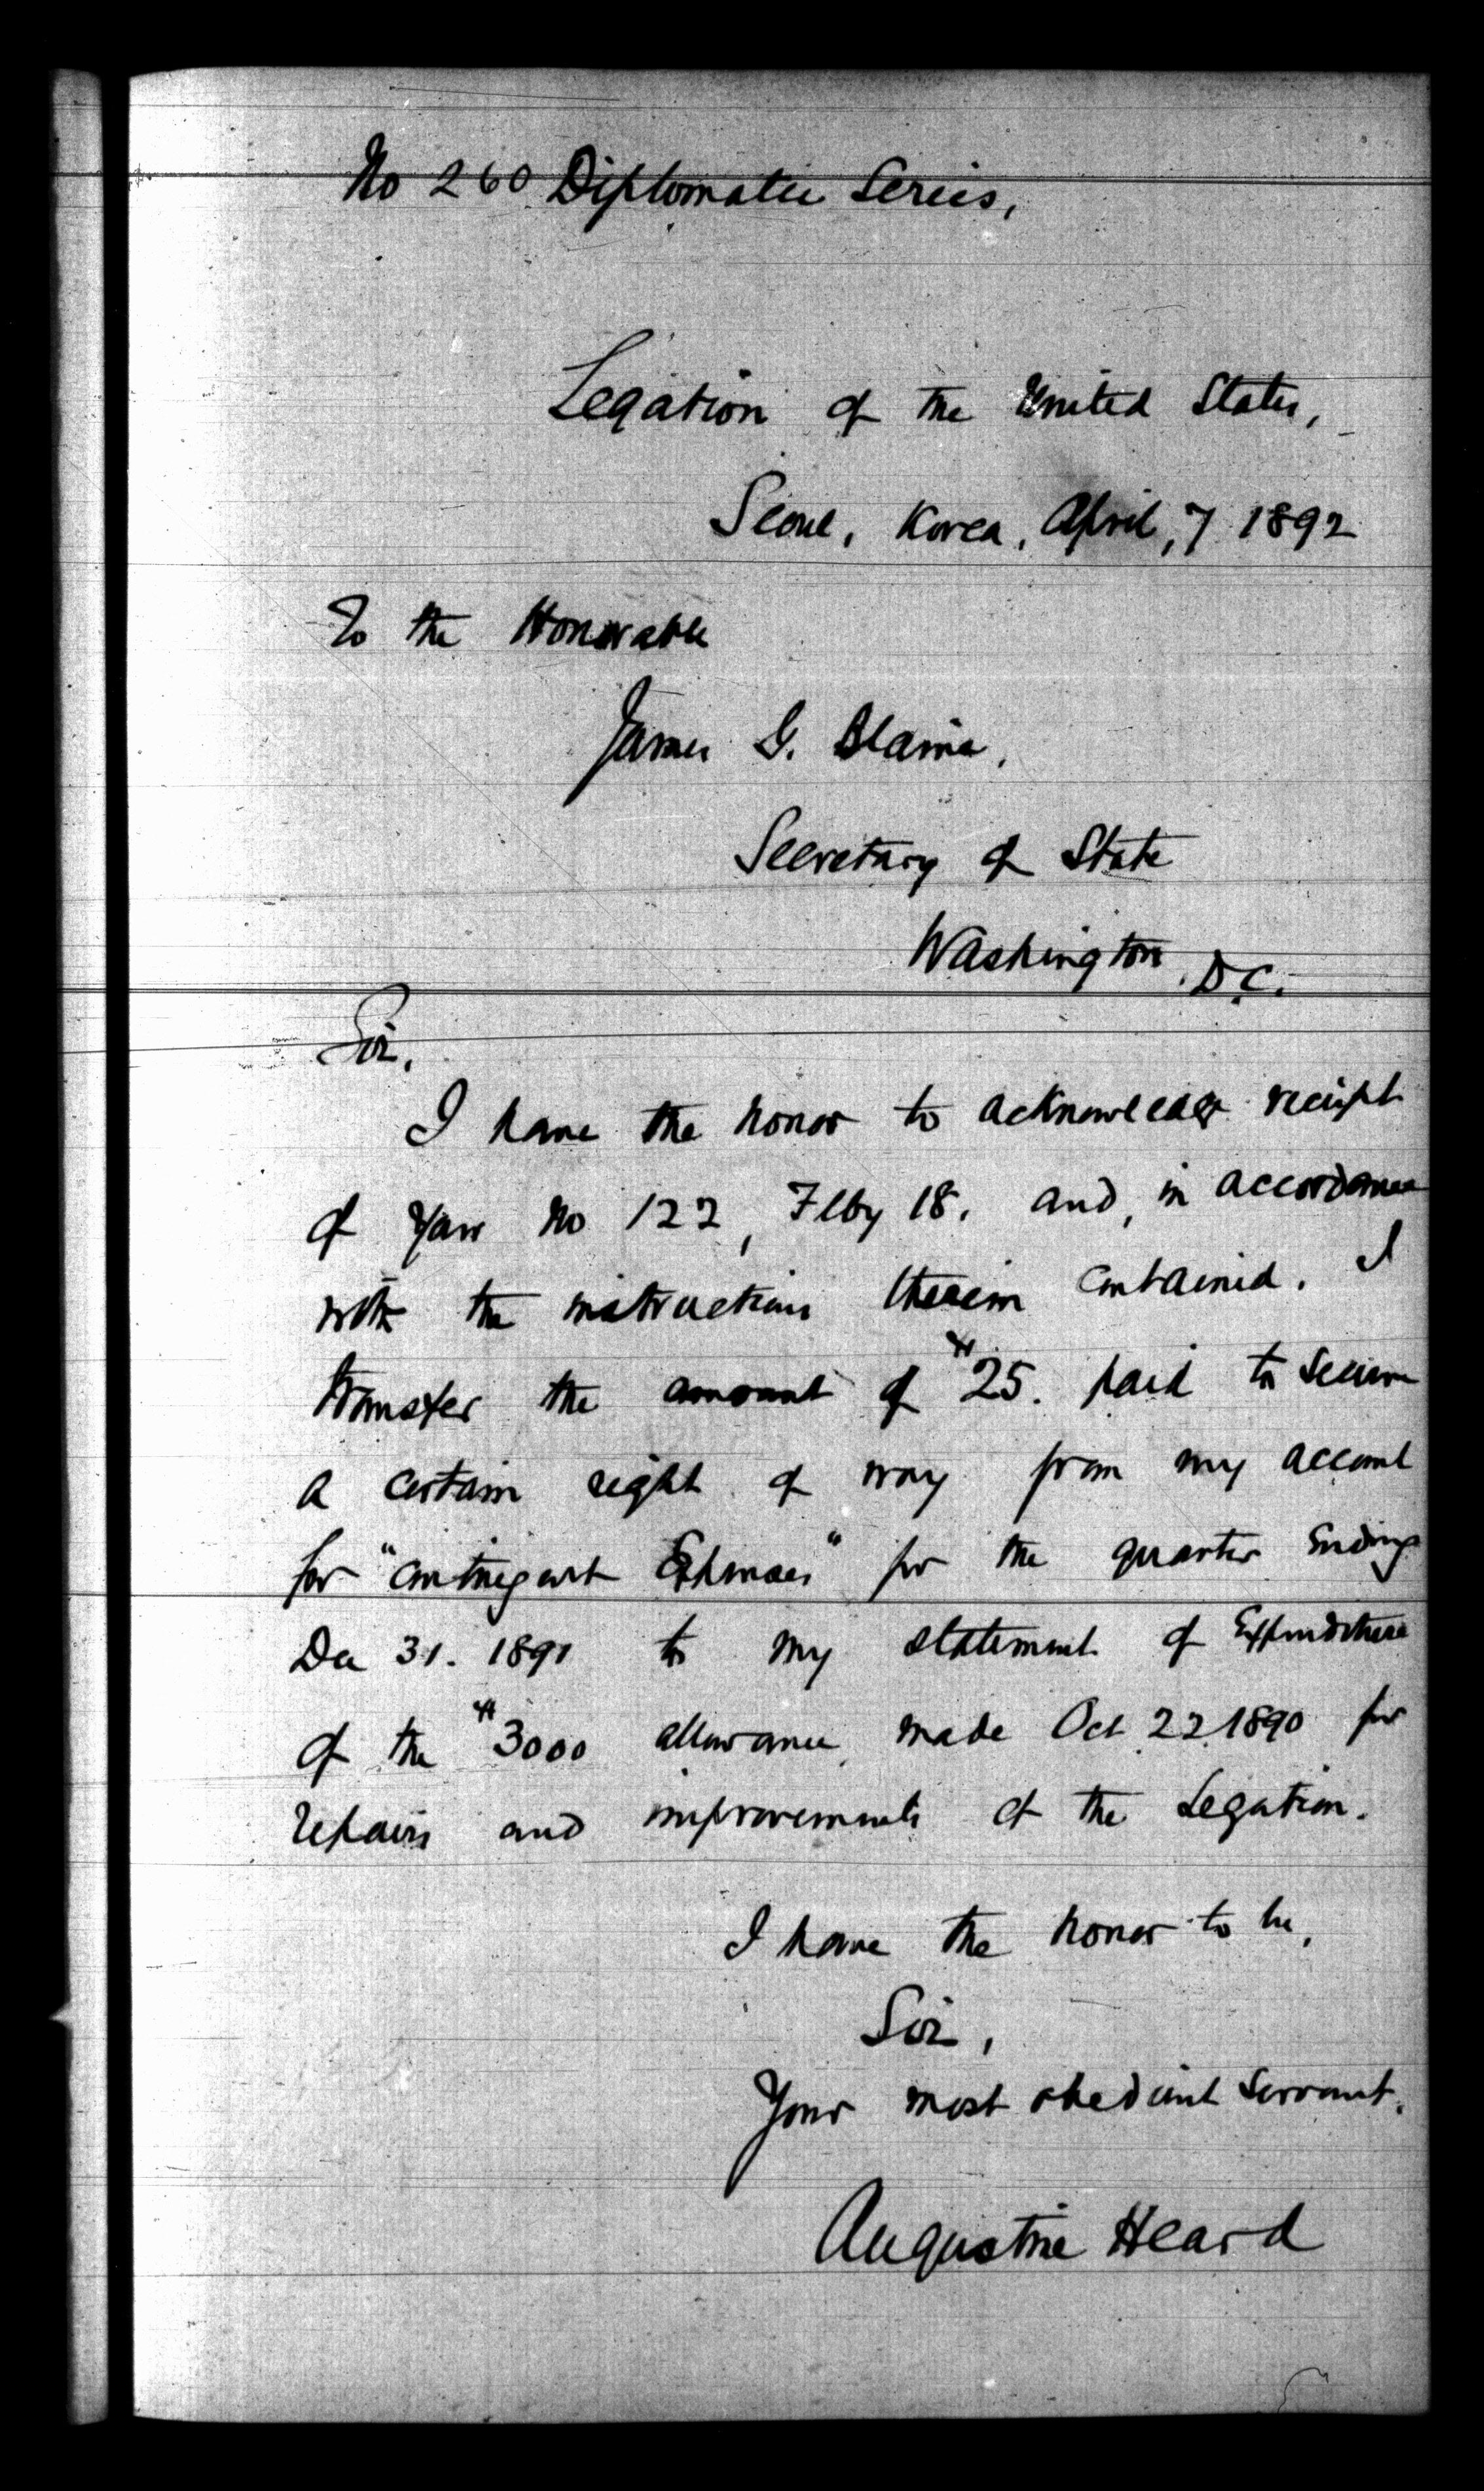 No 260 Diplomatic Series,
Legation of the United States,
Seoul, Korea, April, 7 1892
To the Honorable
James G. Blaine,
Secretary of State
Washington, D.C.
Sir,
I have the honor to acknowledge receipt
of Your No 122, Feby 18. and, in accordance
with the instructions therein contained. I
transfer the amount of $25. paid to secure
a certain right of way from my account
for "Contingent Expenses" for the quarter Ending
Dec 31. 1891 to my statement of Expenditure
of the $3000 allowance made Oct 22. 1890 for
repairs and improvements of the Legation.
I have the honor to be,
Sir,
Your most obedient Servant.
Augustine Heard